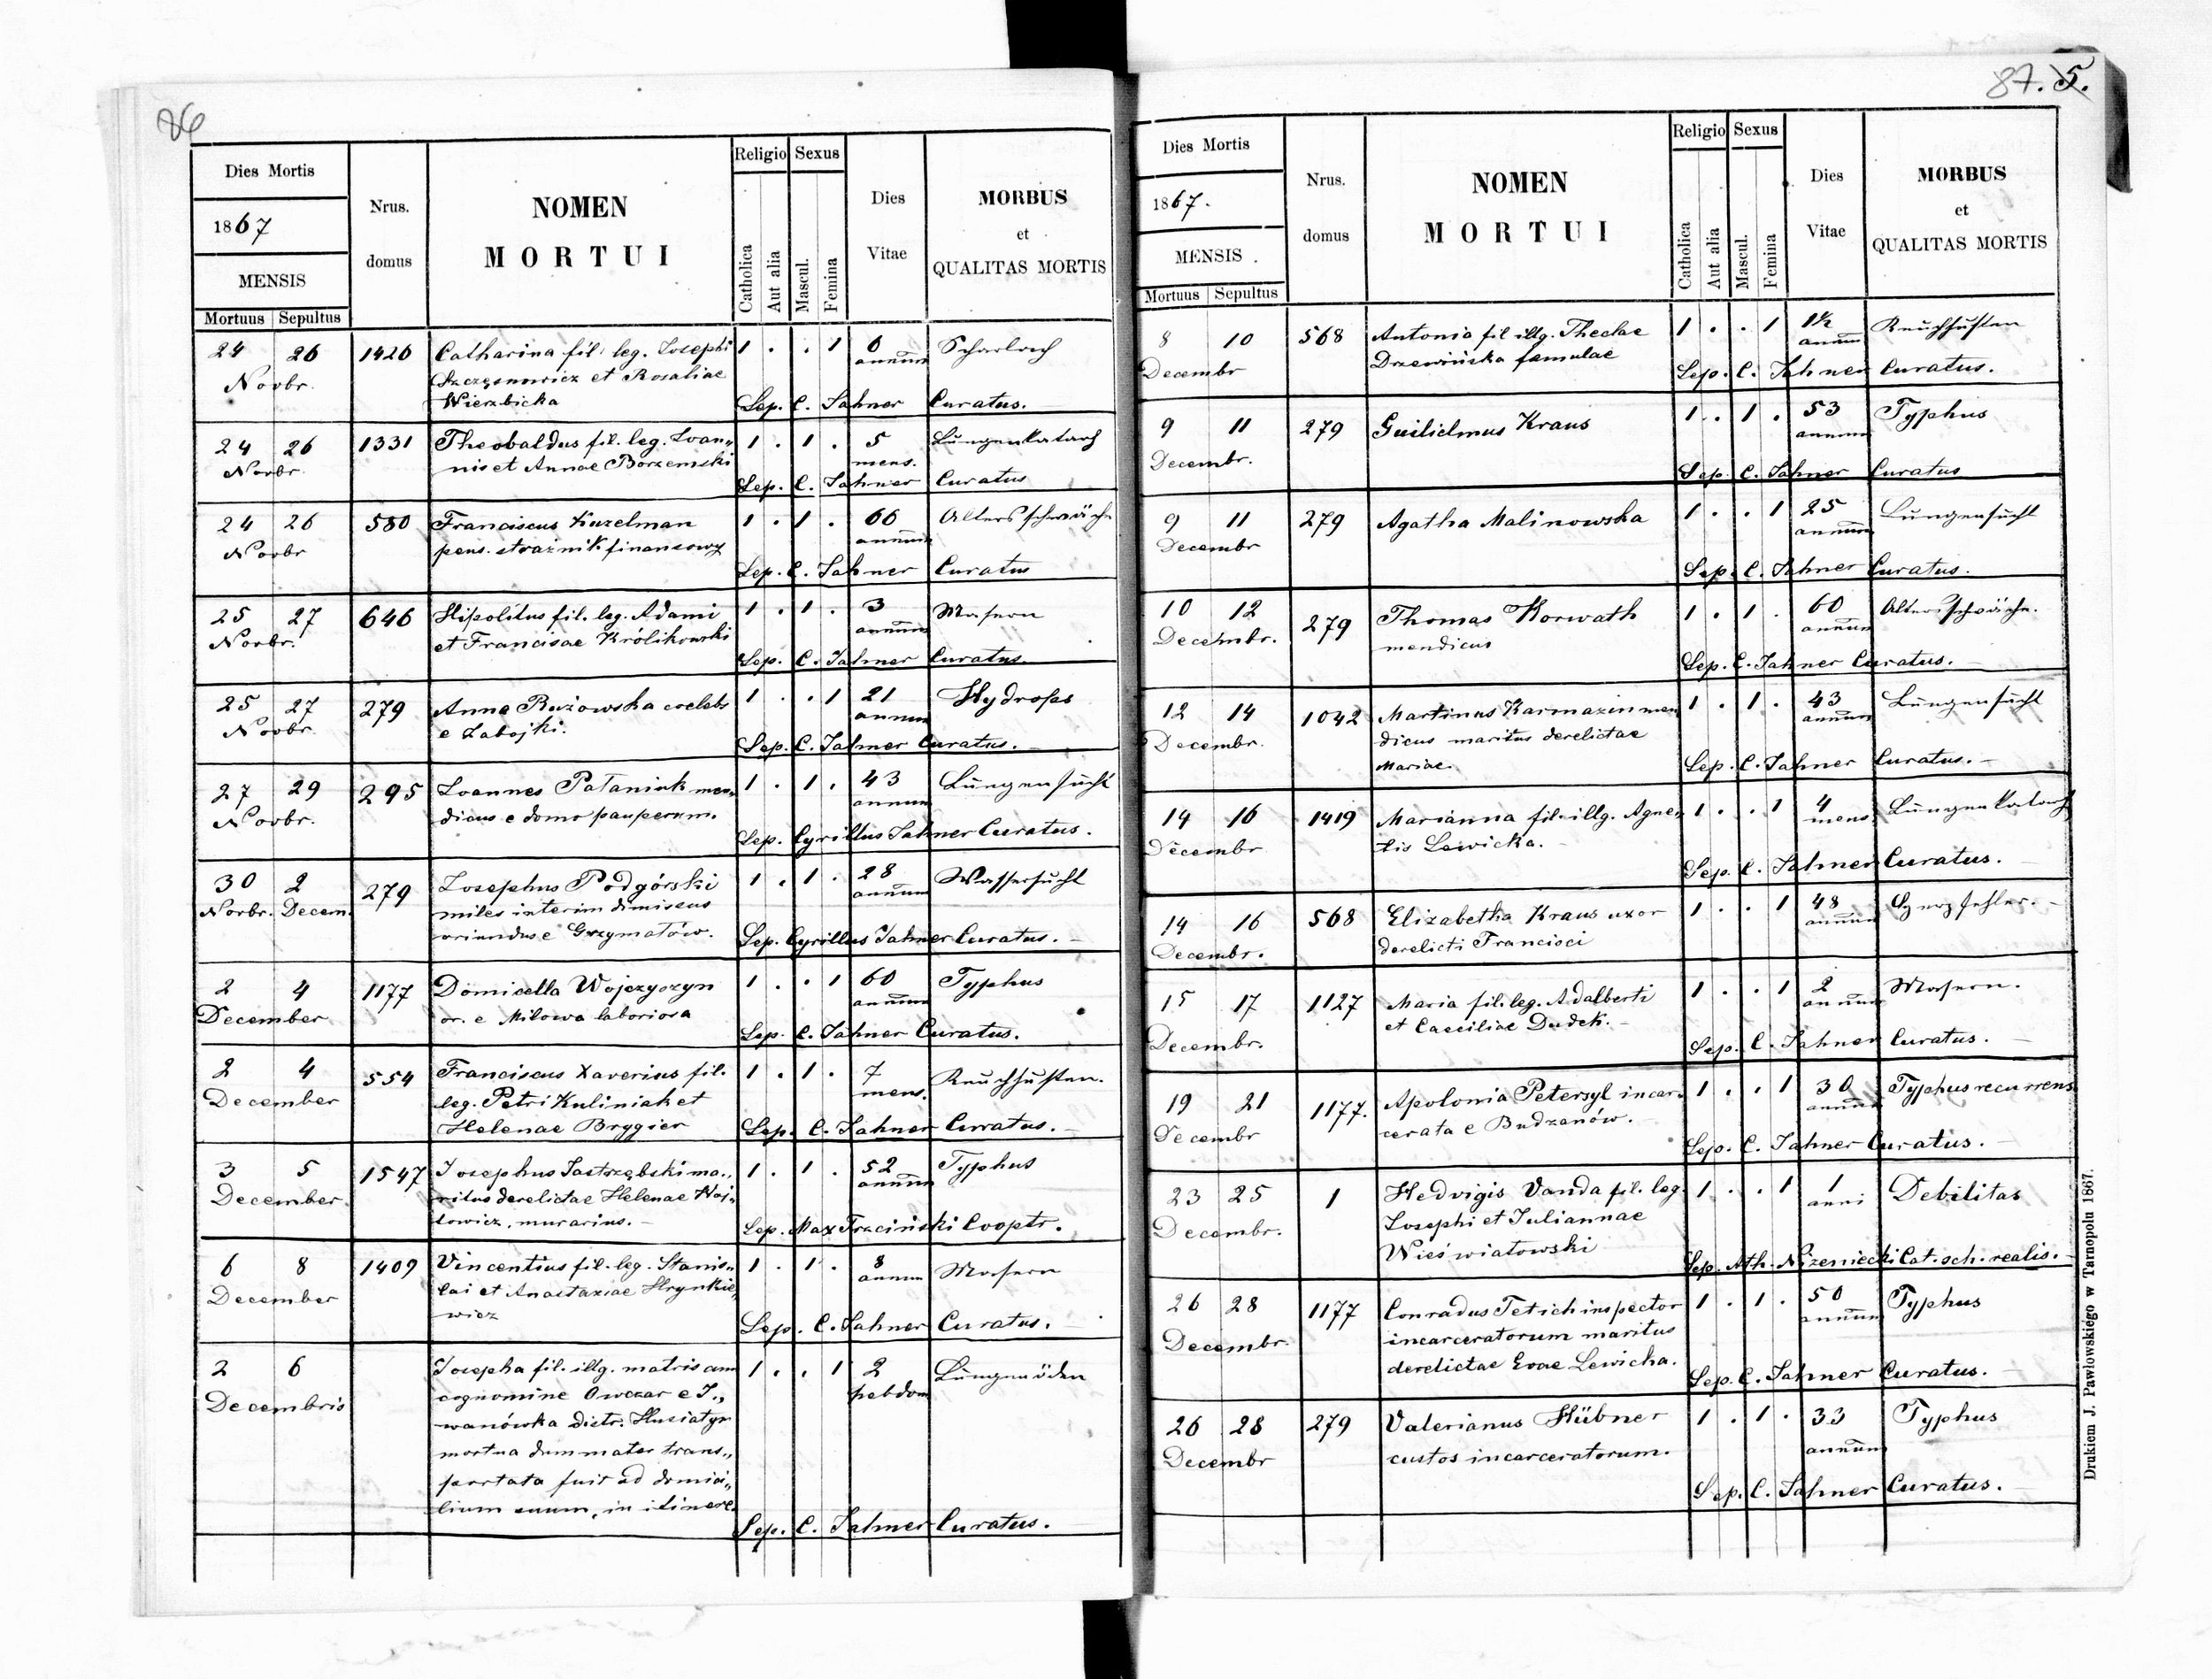 86
Dies Mortis
1867
MENSIS
Mortuus Sepultus
Nrus. domus
NOMEN
MORTUI
Religio
Catholica
Aut alia
Sexus
Mascul.
Femina
Dies Vitae
MORBUS
et
QUALITAS MORTIS
24 26 1426 Catharina fil. leg. Josephi 1 . . 1 6 Scharlach
Novbr. Szczęsnowicz et Rosaliae annum
Wierzbicka
Sep. C. Jahner Curatus.
24 26 1331 Theobaldus fil. leg. Joan„ 1 . 1 . 5 Lungenkatarh
Novbr nis et Annae Borzemski mens.
Sep. C. Jahner Curatus
24 26 580 Franciscus Kuzelman 1 . 1 . 66 Altersschwäche
Novbr pens. strażnik finansowy annum
Sep. C. Jahner Curatus
25 27 646 Hipolitus fil. leg. Adami 1 . 1 . 3 Masern
Novbr. et Francisae Królikowski annum
Sep. C. Jahner Curatus.
25 27 279 Anna Bużowska coelebs 1 . . 1 21 Hydrops
Novbr. e Zabojki. annum
Sep. C. Jahner Curatus.
27 29 295 Joannes Pataniuk men„ 1 . 1 . 43 Lungensucht
Novbr. dicus e domo pauperum. annum
Sep. Cyrillus Jahner Curatus.
30 2 279 Josephus Podgórski 1 . 1 . 28 Wassersucht
Novbr. Decem. miles interim dimissus annum
oriundus e Grzymałów.
Sep. Cyrillus Jahner Curatus.
2 4 1177 Domicella Wojczyczyn 1 . . 1 60 Typhus
December or. e Milowa laboriosa annum
Sep. C. Jahner Curatus.
2 4 554 Franciscus Xaverius fil. 1 . 1 . 7 Keuchhusten.
December leg. Petri Kuliniak et mens.
Helenae Brygier
Sep. C. Jahner Curatus.
3 5 1547 Josephus Jastrzębski ma„ 1 . 1 . 52 Typhus
December ritus derelictae Helenae Woj„ annum
towicz, murarius.
Sep. Max Traciński Cooptr.
6 8 1409 Vincentius fil. leg. Stanis„ 1 . 1 . 8 Masern
December lai et Anastaziae Hrynkie„ annum
wicz
Sep. C. Jahner Curatus.
2 6 Josepha fil. illg. matris cum 1 . . 1 2
Decembris cognomine Owczar e I„ hebdom
wanówka distr. Husiatyn
mortua dum mater trans„
portata fuit ad domici„
lium suum, in itinere.
Sep. C. Jahner Curatus.
87. 5.
Dies Mortis
1867.
MENSIS.
Mortuus Sepultus
Nrus. domus
NOMEN
MORTUI
Religio
Catholica
Aut alia
Sexus
Mascul.
Femina
Dies Vitae
MORBUS
et
QUALITAS MORTIS
8 10 568 Antonia fil illg. Theclae 1 . . 1 1½ Keuchhusten
Decembr Drzewińska famulae annum
Sep. C. Jahner Curatus.
9 11 279 Guilielmus Kraus 1 . 1 . 53 Typhus
Decembr. annum
Sep. C. Jahner Curatus
9 11 279 Agatha Malinowska 1 . . 1 25 Lungensucht
Decembr annum
Sep. C. Jahner Curatus.
10 12 279 Thomas Horwath 1 . 1 . 60 Altersschwäche.
Decembr. mendicus annum
Sep. C. Jahner Curatus.
12 14 1042 Martinus Karmazin men 1 . 1 . 43 Lungensucht
Decembr. dicus maritus derelictae annum
Mariae.
Sep. C. Jahner Curatus.
14 16 1419 Marianna fil. illg. Agne„ 1 . . 1 4 Lungenkatarh
Decembr tis Lewicka. mens.
Sep. C. Jahner Curatus.
14 16 568 Elizabetha Kraus uxor 1 . . 1 48 Herzfehler.
Decembr. derelicti Francisci annum
15 17 1127 Maria fil. leg. Adalberti 1 . . 1 2 Masern.
Decembr. et Caeciliae Dudek. annum
Sep. C. Jahner Curatus.
19 21 1177. Apolonia Petersyl incar„ 1 . . 1 30 Typhus recurrens
Decembr cerata e Budzanów. annum
Sep. C. Jahner Curatus.
23 25 1 Hedvigis Vanda fil. leg. 1 . . 1 1 Debilitas
Decembr. Josephi et Juliannae anni
Wieświatowski
Sep. Ath. Nizeniecki Cat. sch. realis.
26 28 1177 Conradus Tetich inspector 1 . 1 . 50 Typhus
Decembr. incarceratorum maritus annum
derelictae Evae Lewicka.
Sep. C. Jahner Curatus.
26 28 279 Valerianus Hübner 1 . 1 . 33 Typhus
Decembr custos incarceratorum. annum
Sep. C. Jahner Curatus.
Drukiem J. Pawłowskiego w Tarnopolu 1867.